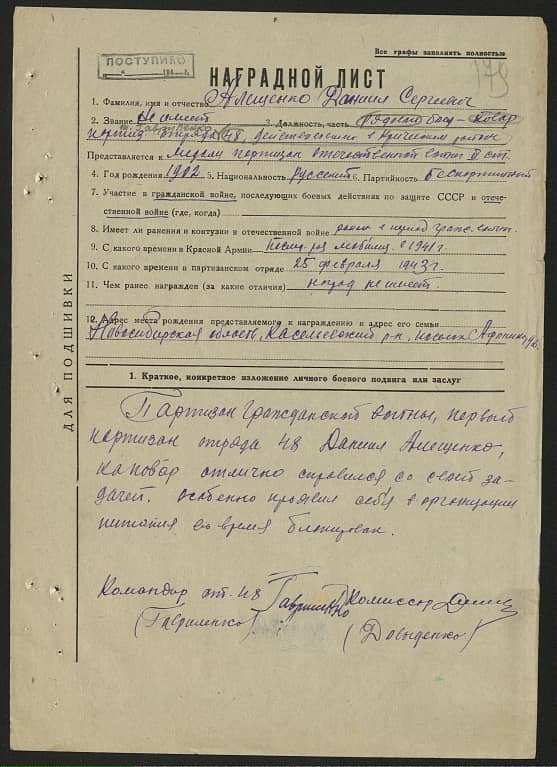 Все графы заполнять полностью
ПОСТУПИЛО
178
НАГРАДНОЙ ЛИСТ
1. Фамилия, имя и отчество Алещенко Даниил Сергеевич
2. Звание не имеет 3. Должность, часть рядной боец - повар
партиз. отряда 48, действовавшего в Кричевском районе
Представляется к Медали партизан отечественной войны II ст.
4. Год рождения 1902 5. Национальность русский 6. Партийность беспартийный
7. Участие в гражданской войне, последующих боевых действиях по защите СССР и отече-
ственной войне (где, когда)
8. Имеет ли ранения и контузии в отечественной войне ранен в период гражд. войны
9. С какого времени в Красной Армии 1941 г.
10. С какого времени в партизанском отряде 25 февраля 1943 г.
11. Чем ранее награжден (за какие отличия) наград не имеет.
12. Адрес места рождения представляемого к награждению и адрес его семьи
Новосибирская область, р-н, поселок
ДЛЯ ПОДШИВКИ
1. Краткое, конкретное изложение личного боевого подвига или заслуг
Партизан гражданской войны, первый
партизан отряда 48 Даниил Алещенко,
как повар отлично справился со своей за-
дачей. Особенно проявил себя в организации
питания во время блокировки.
Командир от. 48 Гавриленко Комиссар
(Гавриленко) (Довыденко)